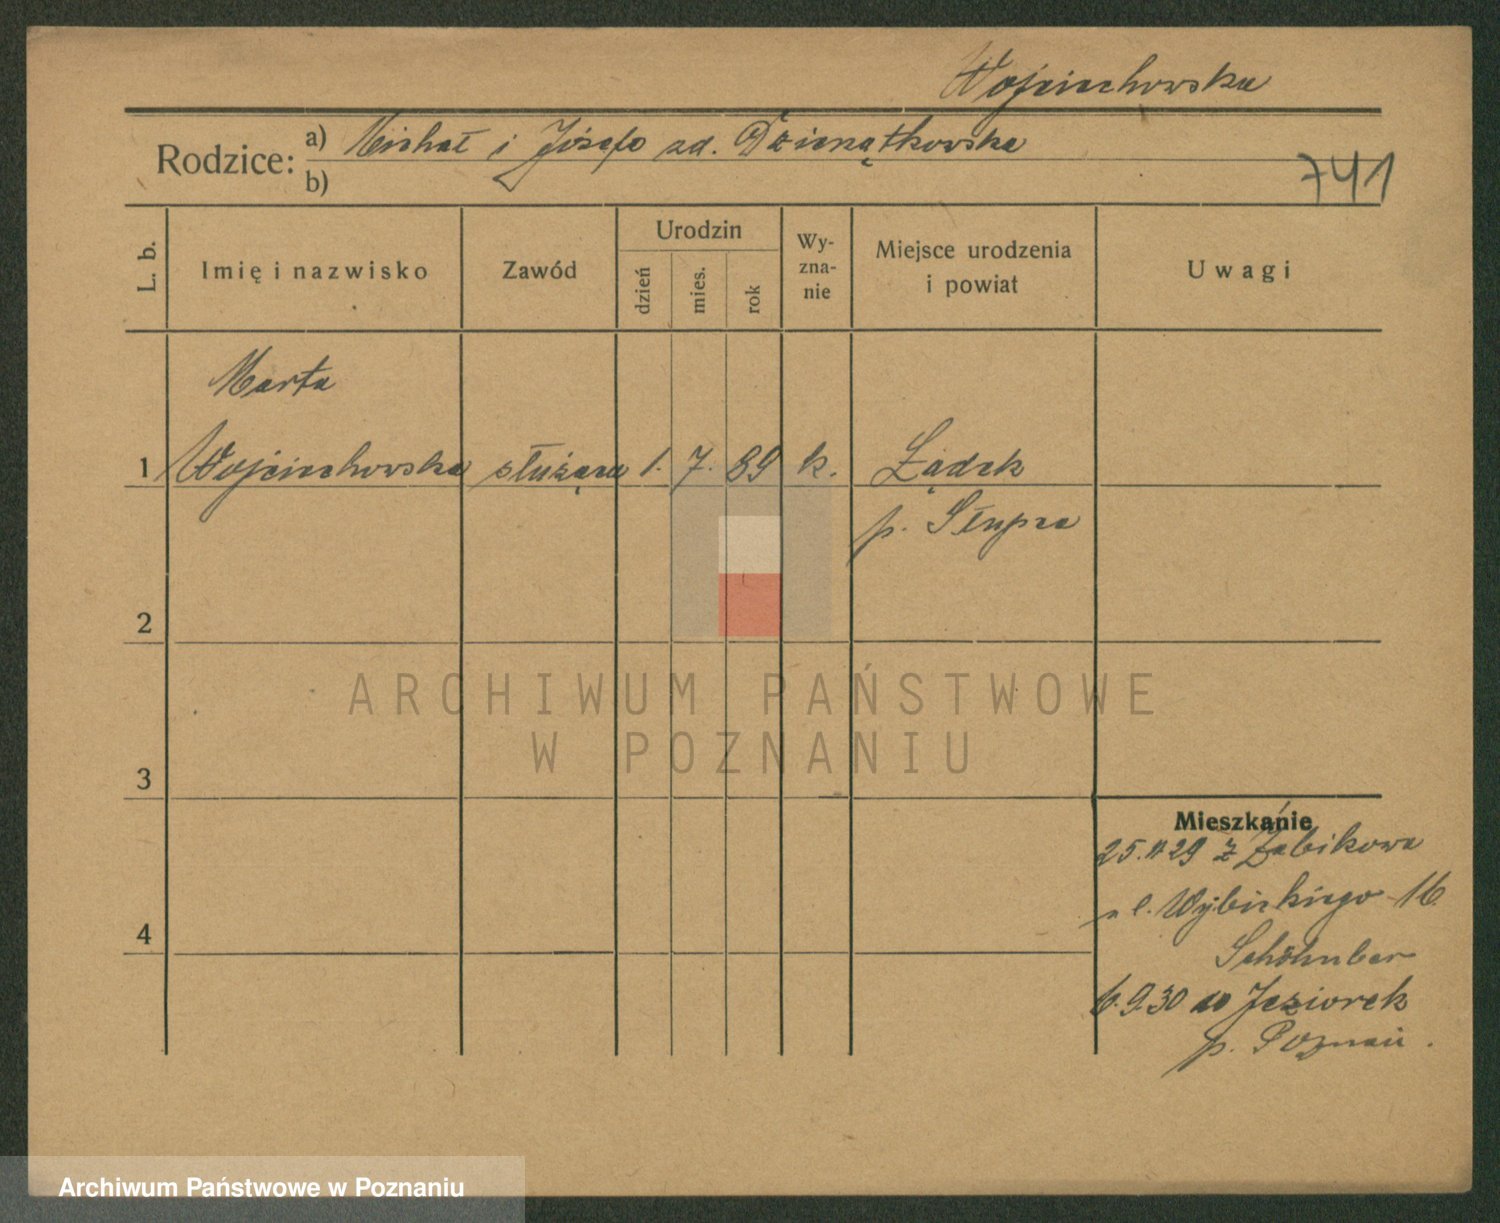 Wojciechowska
Rodzice: a) Michał i Józefa zd. Dzieciątkowska
b)
741
L. b.
Imię i nazwisko
Zawód
Urodzin
dzień
mies.
rok
Wy-
zna-
nie
Miejsce urodzenia
i powiat
Uwagi
Marta
1 Wojciechowska służąca 1. 7. 89 k. Lądek
p. Słupca
2
3
4
Mieszkanie
25. 11 29 z Żabikowa
ul. Wybickiego 16
6. 9. 30 do Jeziorek
p. Poznań.
ARCHIWUM PAŃSTWOWE
W POZNANIU
Archiwum Państwowe w Poznaniu